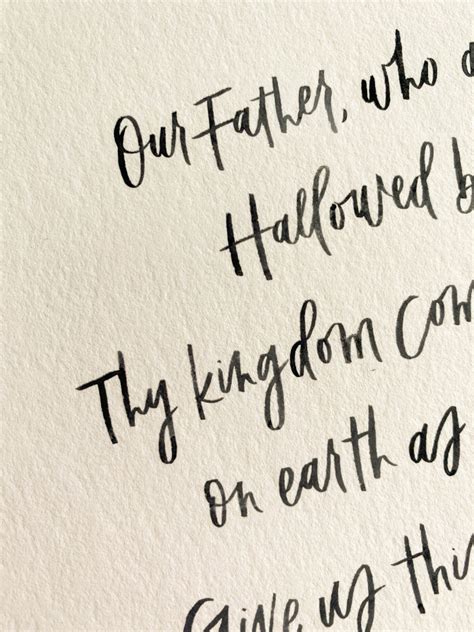 Our Father, who a
Hallowed b
Thy kingdom Com
on earth as
Give us thi